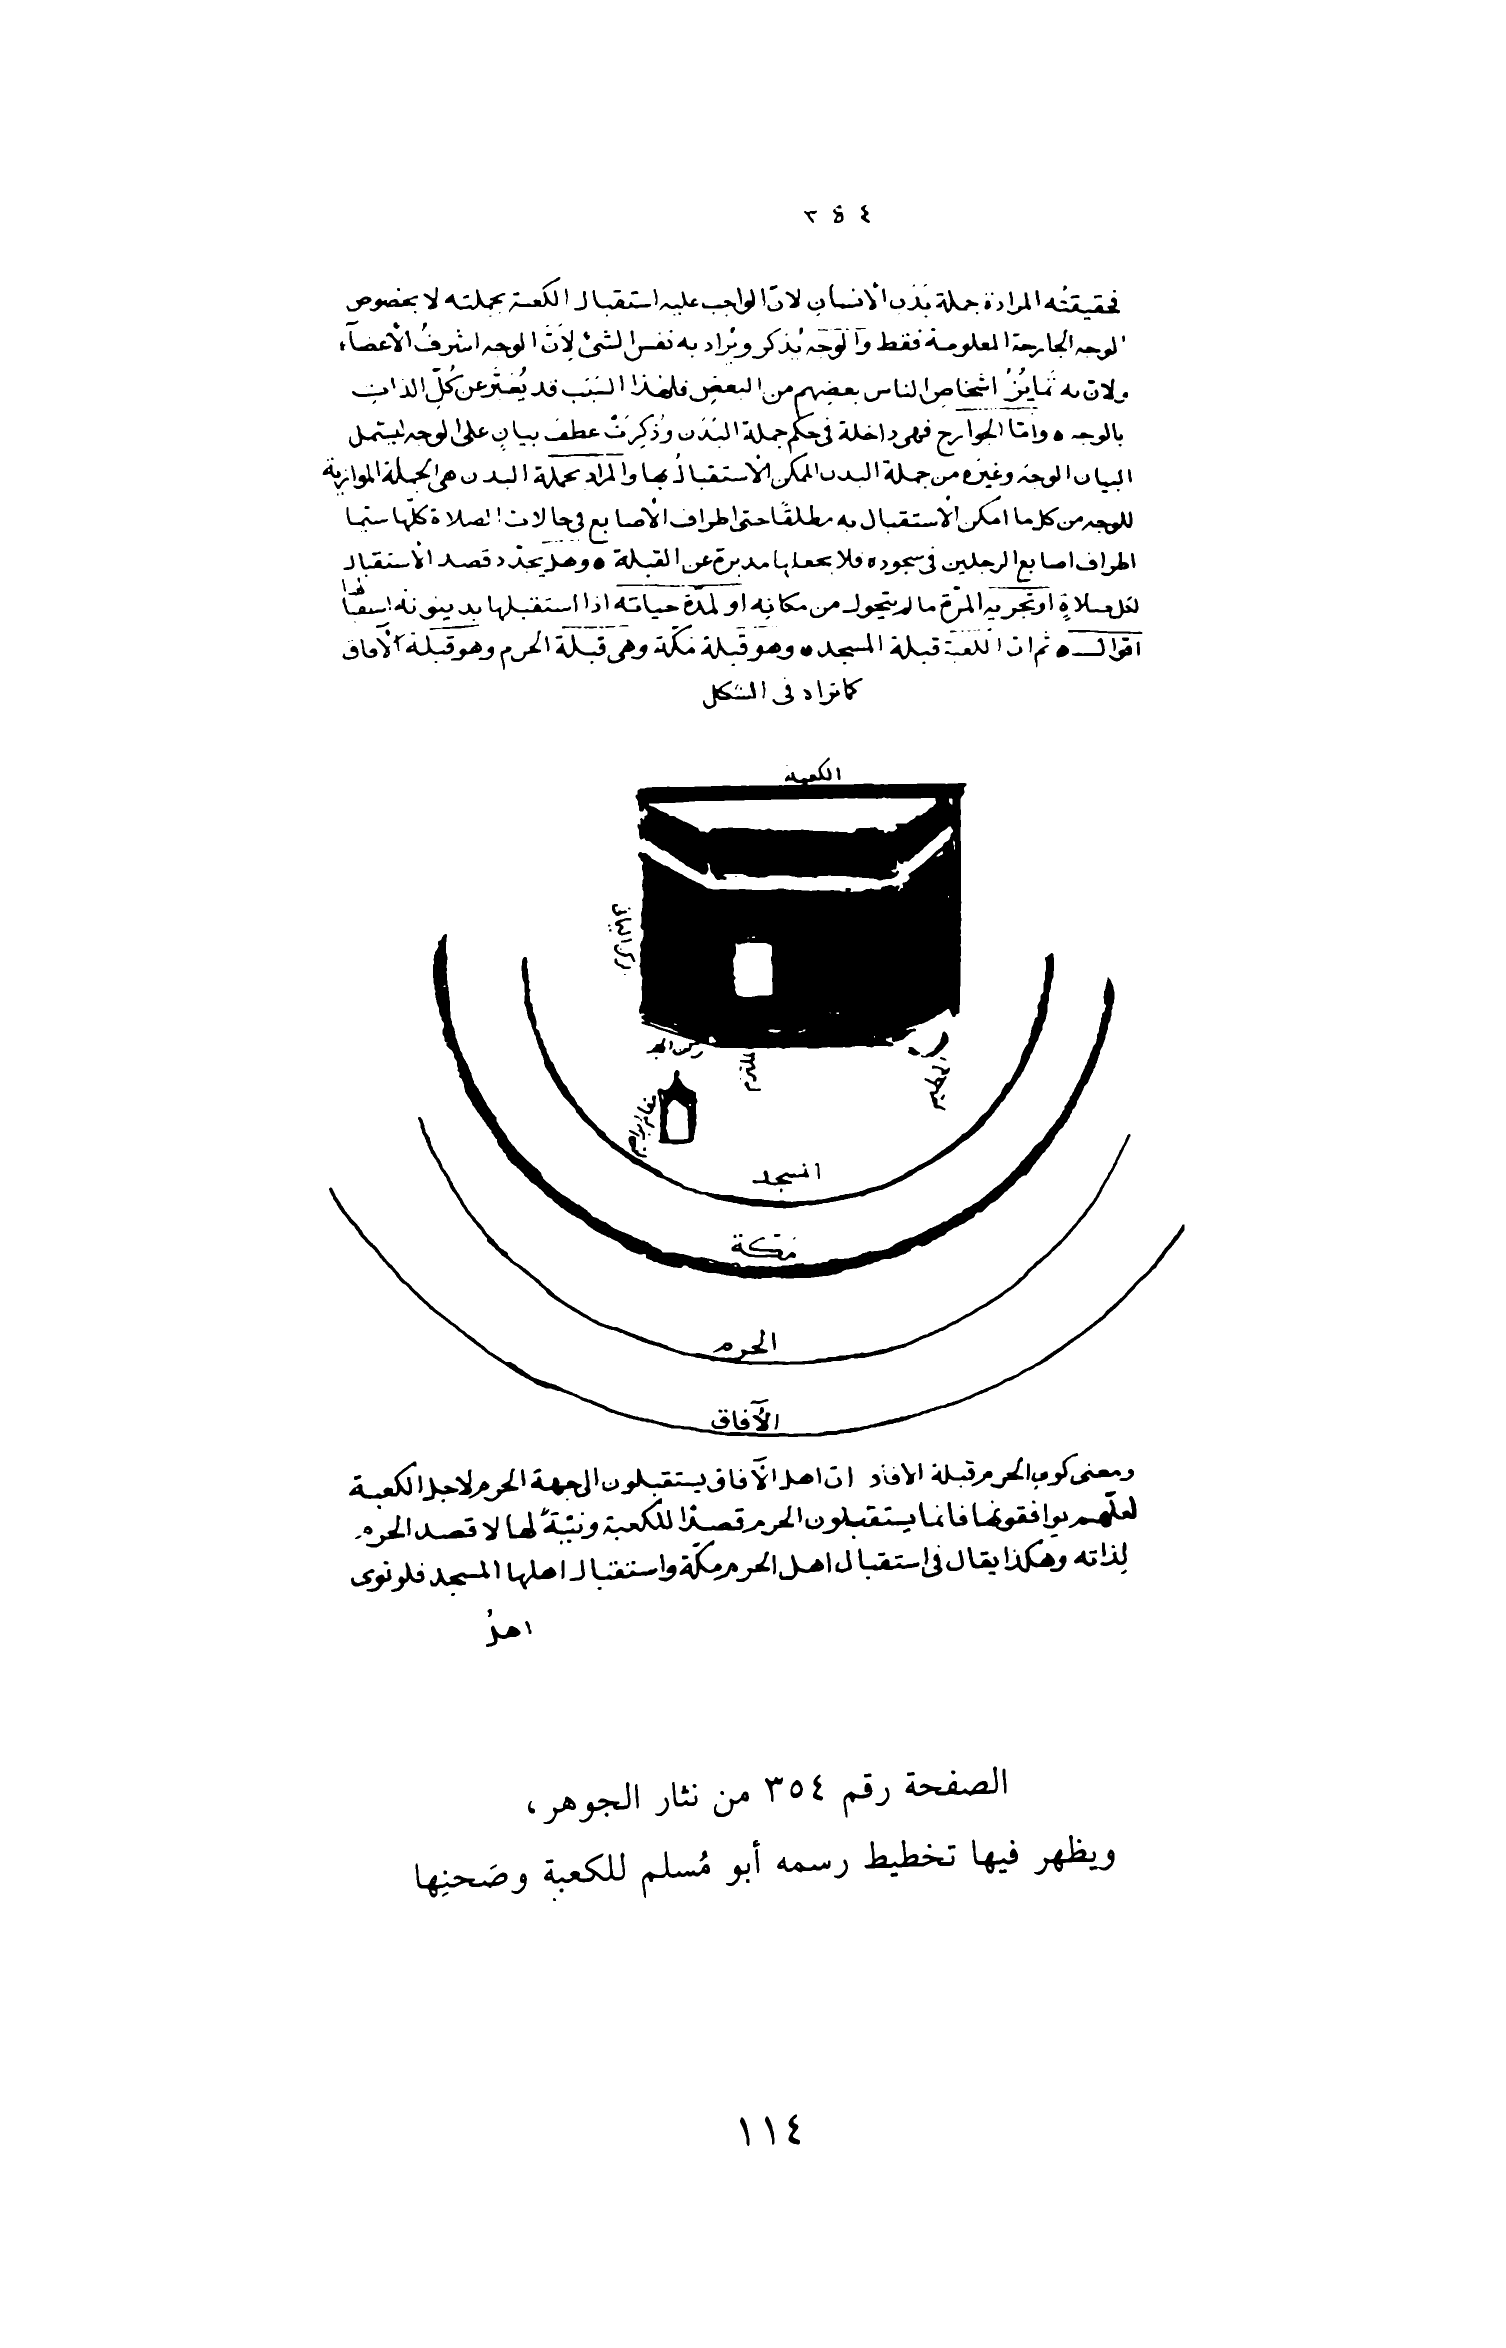 ٣٥٤
فحقيقتُه المرادة جملة بَدَن الانسانِ لانّ الواجب عليه استقبال الكعبة بجملته لا بخصوص
الوجه الجارحة المعلومة فقط والوَجَه يُذكر ويُراد به نفس الشئ لِاَنّ الوجه اشرفُ الأعضآء
ولانّ به تَمَايُزُ اشخاصِ الناس بعضِهم من البعضِ فلهٰذا السَبَب قد يُعَبَّر عن كُلّ الذاتِ
بالوجه ه وامّا الجوارح فهى داخلة فى حكم جملة البَدَن وَذُكِرَتْ عطفَ بيانٍ على الوجه ليشمل
البيان الوجَه وغيرَه من جملة البدن الممكن الاستقبالُ بها والمراد بجملة البدن هى الجملة الموازية
للوجه من كل ما امكن الاستقبال به مطلقًا حتى اطراف الأصابع فى حالات الصلاة كلّها سيّما
اطراف اصابع الرجلين فى سجوده فلا يجعلها مدبرة عن القبلة ه وهل يحدّد قصد الاستقبال
لكل صلاةٍ او تجزيه المرّة ما لم يتحول من مكانِه او لمدّة حياته اذا استقبلها بدينونة استقبالها
اقوال ه ثم ان الكعبة قبلة المسجد ه وهو قبلة مكّة وهى قبلة الحرم وهو قبلة الآفاق
كما تراه فى الشكل
الكعبة
ركن اليمانى
ركن الحجر
الملتزم
مقام ابراهيم
المسجد
مكة
الحرم
الآفاق
ومعنى كون الحرم قبلة الآفاق انّ اهل الآفاق يستقبلون الى جهة الحرم لاجل الكعبة
لعلّهم يوافقونها فانما يستقبلون الحرم قصدًا للكعبة ونيّةً لها لا قصد الحرم
لِذاته وهكذا يقال فى استقبال اهل الحرم مكّة واستقبال اهلها المسجد فلو نوى
اهلُ
الصفحة رقم ٣٥٤ من نثار الجوهر،
ويظهر فيها تخطيط رسمه أبو مُسلم للكعبة وصَحنِها
١١٤